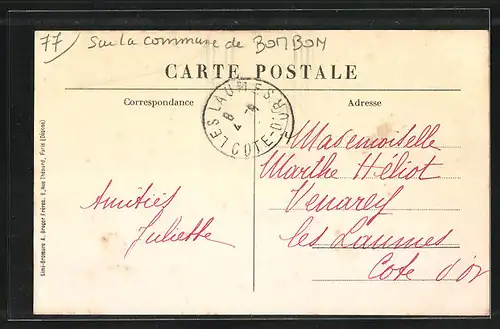 77 Sur la commune de BOMBON
CARTE POSTALE
Correspondance
Adresse
LES LAUMES
COTE-D'OR
8
4
Mademoiselle
Marthe Héliot
Venarey
les Laumes
Cote d'or
Amitiés
Juliette
Simi-Bromure A. Breger Frères, 9, Rue Thénard, Paris